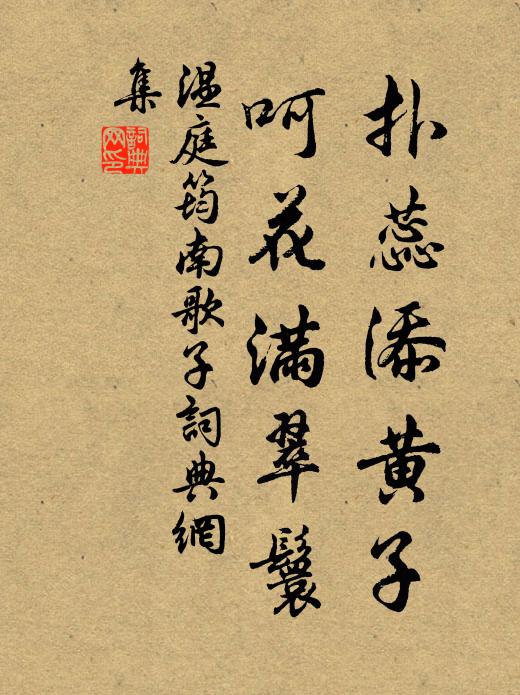 扑蕊添黄子
呵花满翠鬟
温庭筠南歌子詞典網
集
詞典网印